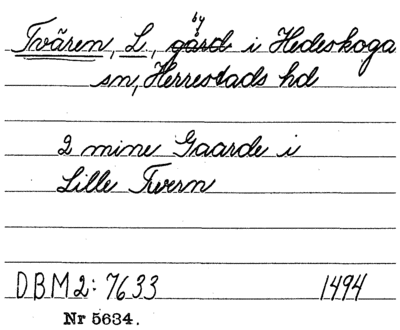 Tvären, L., by gård i Hedeskoga
sn, Herrestads hd
2 mine Gaarde i
Lille Tvern
DBM 2: 7633 1494
Nr 5634.